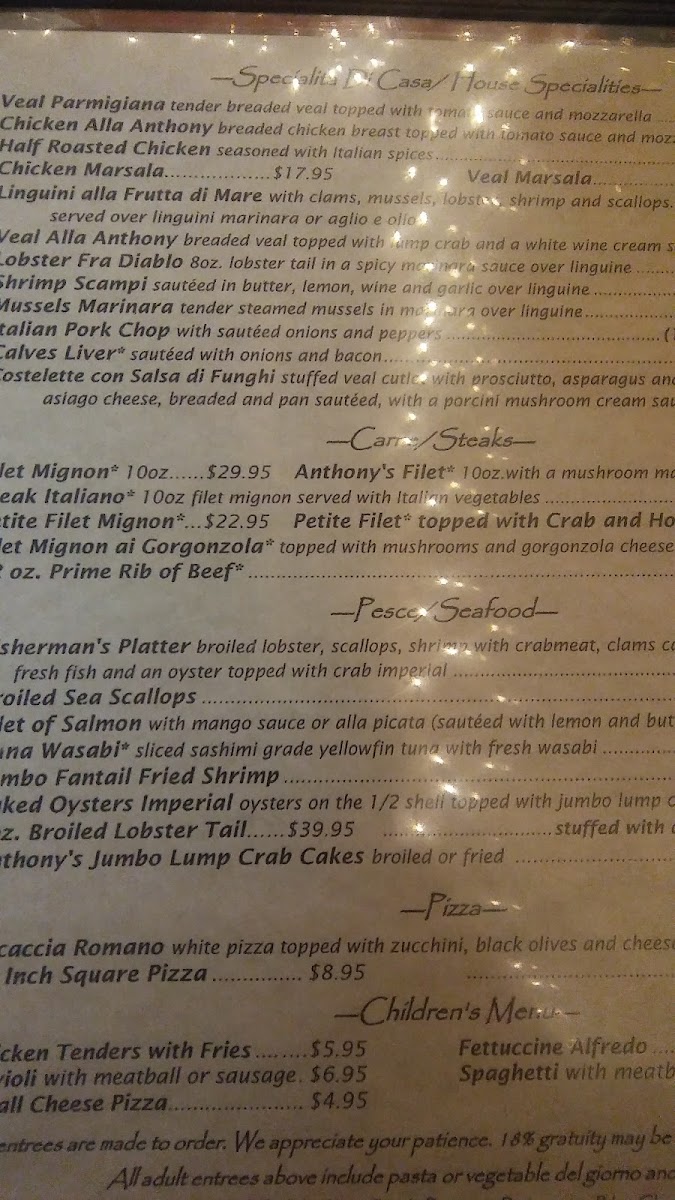 —Specialita Di Casa/House Specialities—
Veal Parmigiana tender breaded veal topped with tomato sauce and mozzarella ....
Chicken Alla Anthony breaded chicken breast topped with tomato sauce and mozz
Half Roasted Chicken seasoned with Italian spices....................
Chicken Marsala..................$17.95 Veal Marsala..............
Linguini alla Frutta di Mare with clams, mussels, lobster, shrimp and scallops.
served over linguini marinara or aglio e olio
Veal Alla Anthony breaded veal topped with lump crab and a white wine cream s
Lobster Fra Diablo 8oz. lobster tail in a spicy marinara sauce over linguine .......
Shrimp Scampi sautéed in butter, lemon, wine and garlic over linguine ..............
Mussels Marinara tender steamed mussels in marinara over linguine................
talian Pork Chop with sautéed onions and peppers ....................................(1
Calves Liver* sautéed with onions and bacon..................................................
Costelette con Salsa di Funghi stuffed veal cutlet with prosciutto, asparagus and
asiago cheese, breaded and pan sautéed, with a porcini mushroom cream sau
—Carne/Steaks—
let Mignon* 10oz......$29.95 Anthony's Filet* 10oz.with a mushroom ma
eak Italiano* 10oz filet mignon served with Italian vegetables ......................
etite Filet Mignon*...$22.95 Petite Filet* topped with Crab and Ho
let Mignon ai Gorgonzola* topped with mushrooms and gorgonzola cheese
2 oz. Prime Rib of Beef*.........................................................................
—Pesce/Seafood—
sherman's Platter broiled lobster, scallops, shrimp with crabmeat, clams ca
fresh fish and an oyster topped with crab imperial .....................................
roiled Sea Scallops ................................................................................
let of Salmon with mango sauce or alla picata (sautéed with lemon and butt
una Wasabi* sliced sashimi grade yellowfin tuna with fresh wasabi ..............
mbo Fantail Fried Shrimp.....................................................................
ked Oysters Imperial oysters on the 1/2 shell topped with jumbo lump c
oz. Broiled Lobster Tail......$39.95 ............................stuffed with c
nthony's Jumbo Lump Crab Cakes broiled or fried ...........................
—Pizza—
caccia Romano white pizza topped with zucchini, black olives and cheese
Inch Square Pizza............... $8.95 ...................................
—Children's Menu—
cken Tenders with Fries........$5.95 Fettuccine Alfredo ....
violi with meatball or sausage. $6.95 Spaghetti with meatb
all Cheese Pizza....................... $4.95
entrees are made to order. We appreciate your patience. 18% gratuity may be
All adult entrees above include pasta or vegetable del giorno and